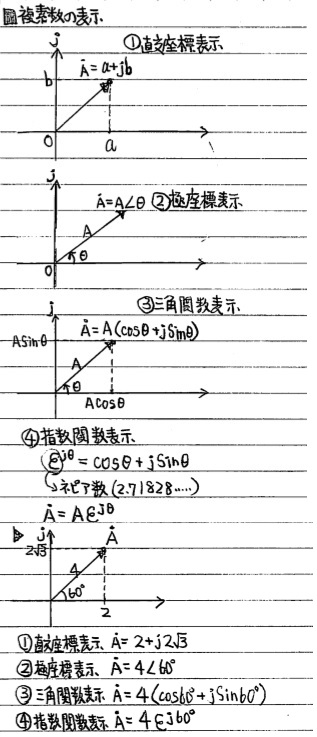 圖複素数の表示
①直交座標表示
j
Ȧ=a+jb
b
0
a
j
Ȧ=A∠θ ②極座標表示
A
θ
0
③三角関数表示
j
Asinθ
Ȧ=A(cosθ+jsinθ)
A
θ
Acosθ
④指数関数表示
ε^jθ = cosθ+jsinθ
ネピア数(2.71828……)
Ȧ=Aε^jθ
j
Ȧ
2√3
4
60°
2
①直交座標表示 Ȧ=2+j2√3
②極座標表示、Ȧ=4∠60°
③三角関数表示 Ȧ=4(cos60°+jsin60°)
④指数関数表示 Ȧ=4ε^j60°